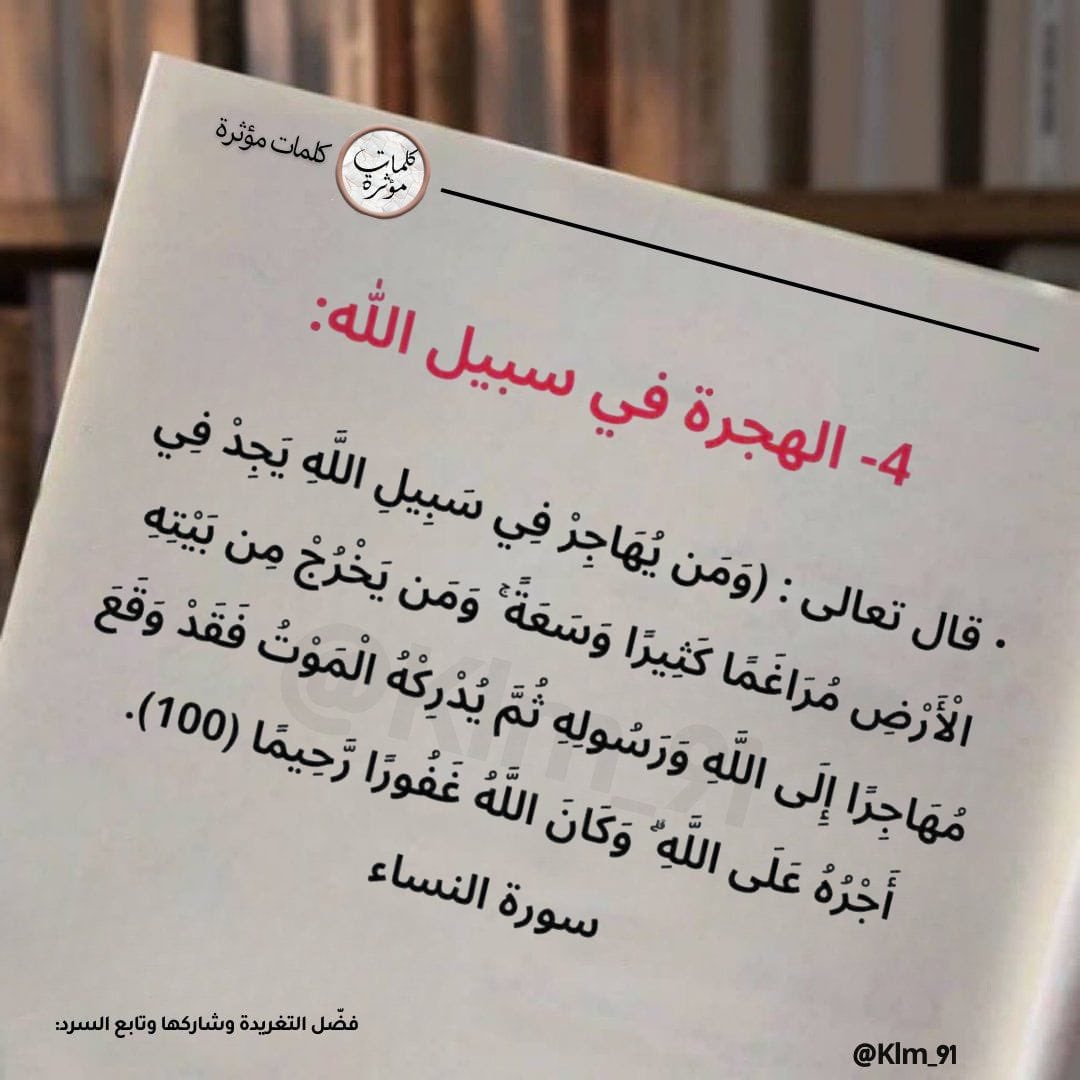 كلمات مؤثرة
كلمات
مؤثرة
4- الهجرة في سبيل الله:
• قال تعالى : (وَمَن يُهَاجِرْ فِي سَبِيلِ اللَّهِ يَجِدْ فِي
الْأَرْضِ مُرَاغَمًا كَثِيرًا وَسَعَةً ۚ وَمَن يَخْرُجْ مِن بَيْتِهِ
مُهَاجِرًا إِلَى اللَّهِ وَرَسُولِهِ ثُمَّ يُدْرِكْهُ الْمَوْتُ فَقَدْ وَقَعَ
أَجْرُهُ عَلَى اللَّهِ ۗ وَكَانَ اللَّهُ غَفُورًا رَّحِيمًا (100).
سورة النساء
@Klm_91
فضّل التغريدة وشاركها وتابع السرد:
@Klm_91